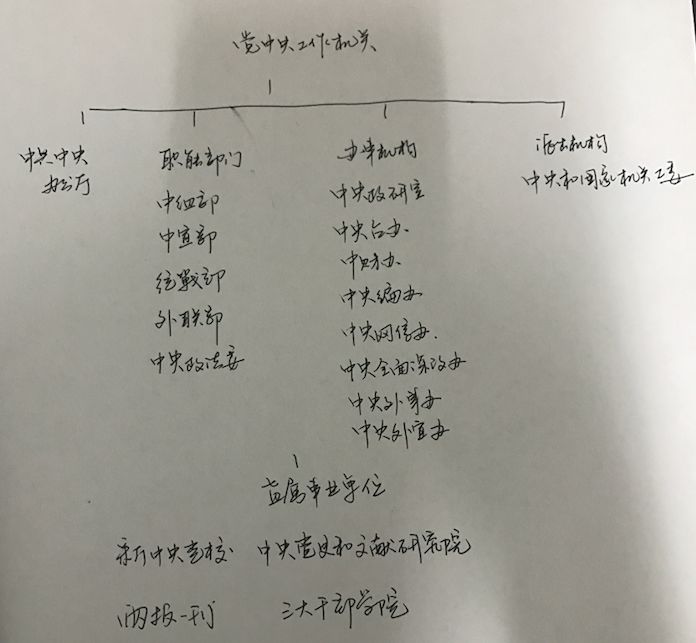 党中央工作机关
中共中央
办公厅
职能部门
中组部
中宣部
统戰部
外联部
中央政法委
办事机构
中央政研室
中央台办
中财办
中央编办
中央网信办
中央全面深改办
中央外事办
中央外宣办
派出机构
中央和国家机关工委
直属事业单位
新中央党校 中央党史和文献研究院
两报一刊 三大干部学院